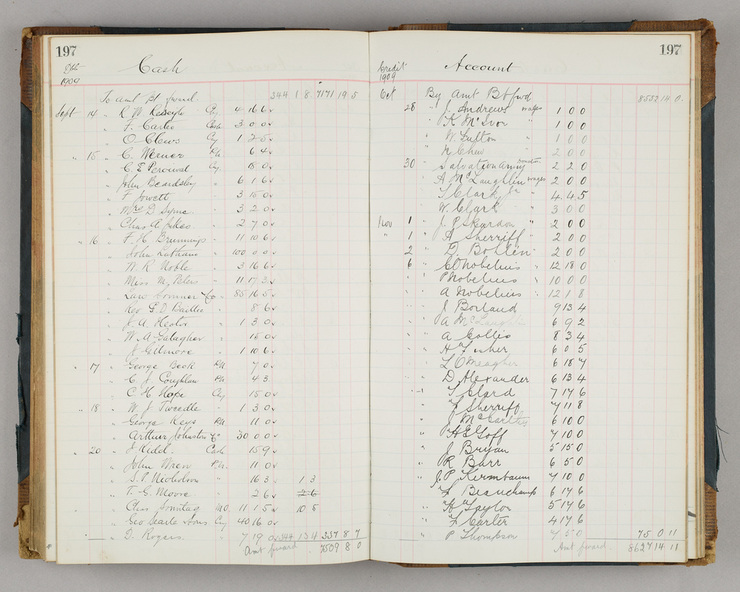 197
Cash
1909
To amt bt forwd. 244 1 8 7171 19 5
Sept 14 " 4 16 6
" F. Carter Cash 3 0 0
" O Clews Cy
" 15 " C. Werner 6 4
" C E Percival Cy 15 0
" John Beardsley " 6 1 6
" F Jowett 3 15 0
" Mrs D Syme " 3 2 0
" Chas A " 2 7 0
" 16 " " 11 10 6
" John Latham " 100 0 0
" W R Noble " 3 16 6
" Miss M. " 11 17 3
" Co. 85 16 5
" Rev G. D " 8 6
" J. A. Hector " 1 3 0
" W. A Gallagher " 15 0
" J Gillmore " 1 10 6
" 17 " George Beck 7 0
" C. J Coughlan 4 3
" C. H Hope Cy 15 0
" 18 " W. J Tweedle " 1 3 0
" George Keys 11 0
" Arthur Johnston 30 0 0
" 20 " J Kidel Cash 15 9
" John Wren 11 0
" S. P. Nicholson " 16 3 1 3
" T. G. Moore " 2 6 2 6
" Chas Sonntag MO 11 1 5 10 5
" Geo Searle Cy 40 16 0
" D. Rogers " 7 19 0 244 13 11 337 8 7
Amt forwd. 7509 8 0
197
Credit
1909
Account
Oct By Amt Bt fwd 8552 14 0
28 " J Andrews wages 1 0 0
" K McIvor " 1 0 0
" W Fulton " 1 0 0
" " 2 0 0
30 " Salvation Army 2 2 0
" A McLaughlin wages 2 0 0
" T Clark 4 4 5
" W Clark " 3 0 0
Nov 1 " J P Skardon " 2 0 0
" 1 " A Sherriff " 2 0 0
2 " D Bollen " 2 0 0
6 " C Nobelius " 12 18 0
" P Nobelius " 10 0 0
" A Nobelius " 12 1 8
" J Borland 9 13 4
" A McLaughlin 6 9 2
" A Collis 8 3 4
" H Fisher 6 0 5
" L O'Meagher 6 18 7
" D Alexander 6 13 4
" T Clard 7 17 6
" F Sherriff 7 11 8
" McCarthy 6 10 0
" H E Goff 7 10 0
" J Bryan 5 15 0
" R Barr 6 5 0
" J. P Kermbaum 7 10 0
" F Beauchamp 6 17 6
" H Taylor 5 17 6
" F Carter 4 17 6
" P Thompson 7 5 0 75 0 11
Amt forwd. 8627 14 11